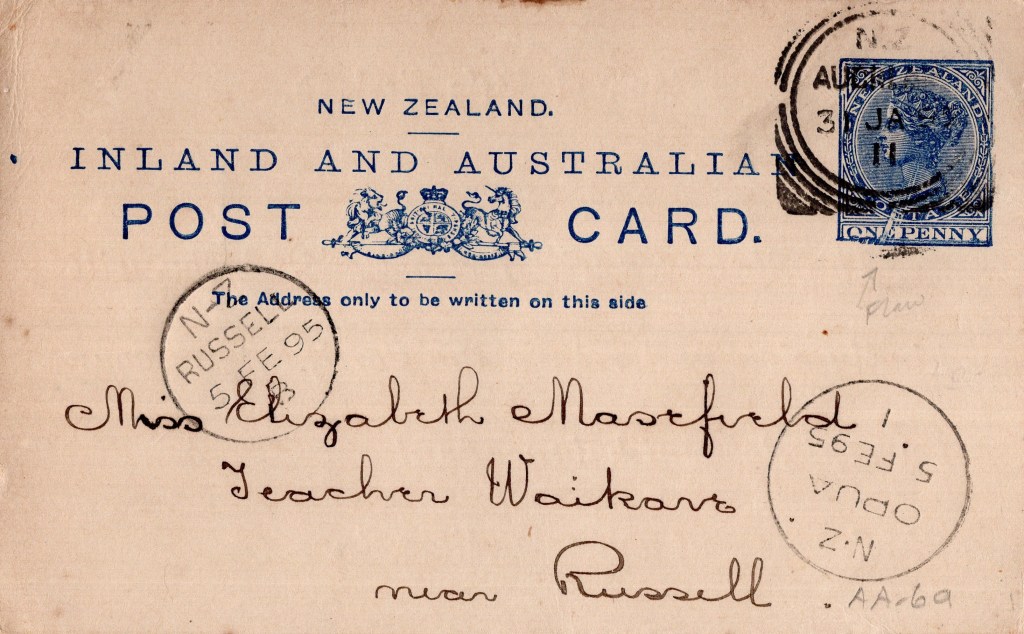 NEW ZEALAND.
INLAND AND AUSTRALIAN
POST CARD.
The Address only to be written on this side
N.Z
31 JA
11
NEW ZEALAND
ONE PENNY
N-Z
RUSSELL
5 FE 95
B
Miss Elizabeth Masefield.
Teacher Waikare
near Russell.
1
5 FE95
OPUA
N.Z.
AA-6a